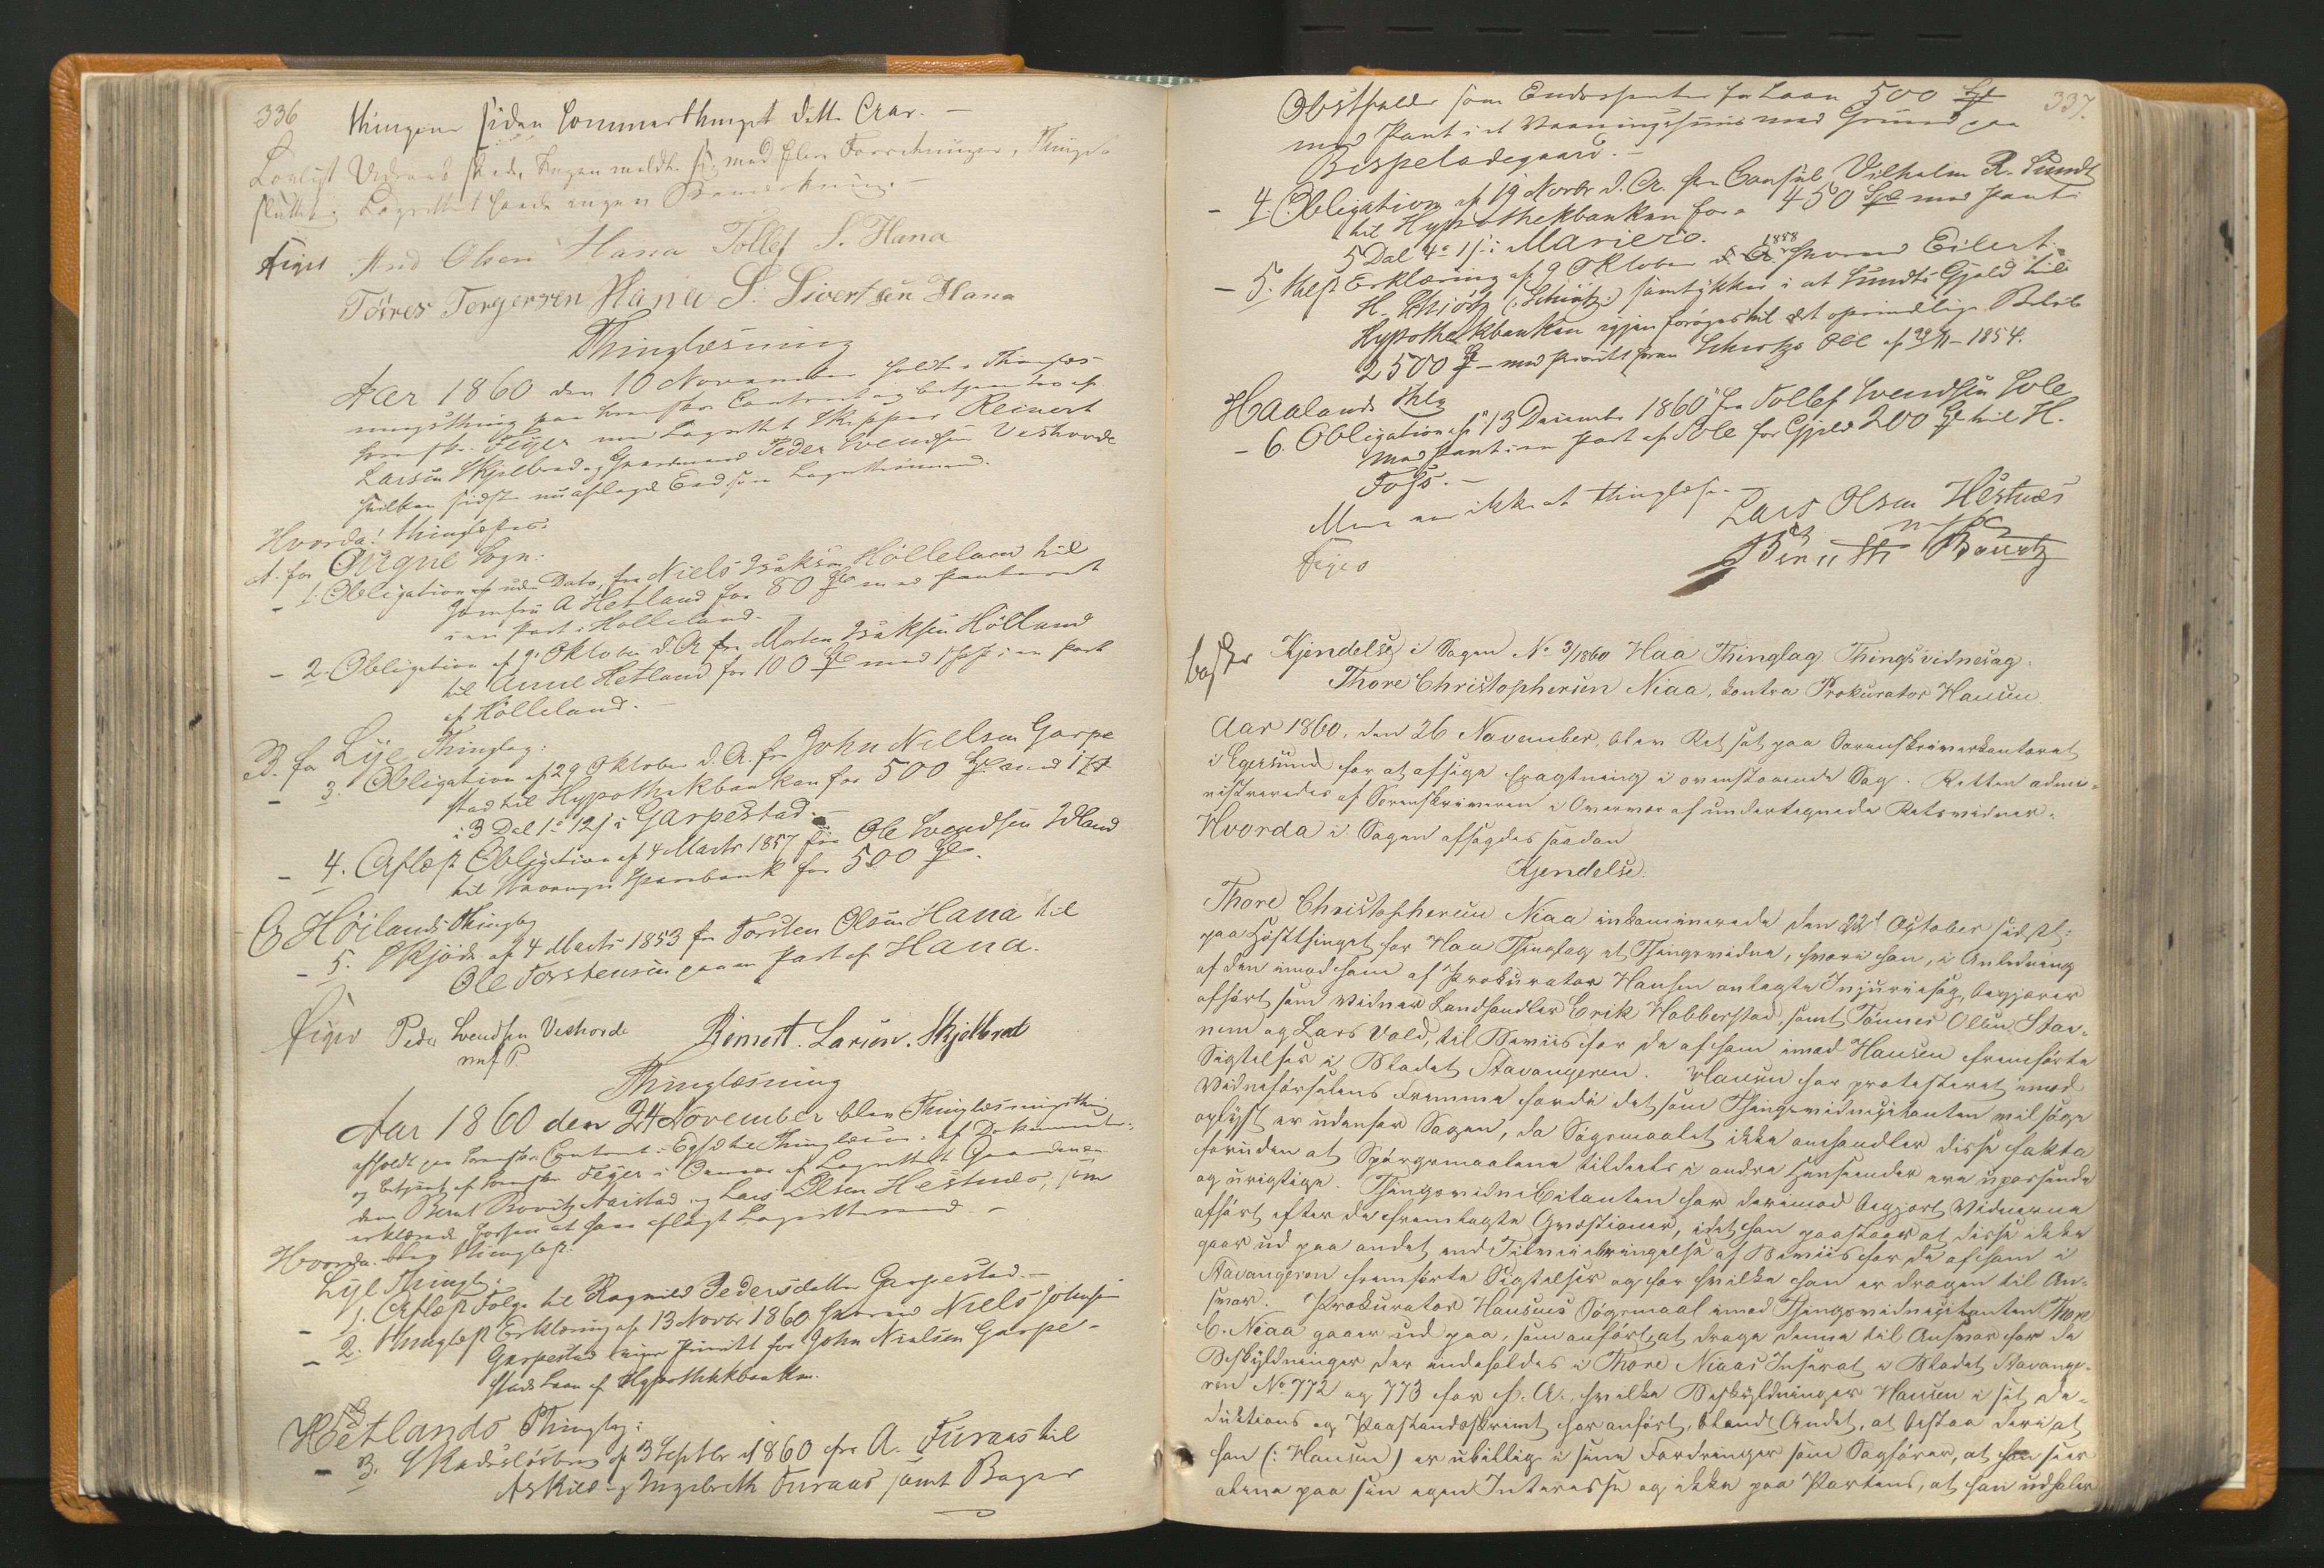 336
thingene siden Sommerthinget dette Aar. —
Lovligt Udraab skede, Ingen meldte sig med flere Forretninger, Thinget
sluttet og Lagrettet havde ingen Bemærkning. —
Feyer And Olsen Hana Tollef S. Hana
Törres Torgersen Hana S. Sivertsen Hana
Thinglæsning
Aar 1860 den 10 November holdtes Thinglæs-
ningsthing paa Sorenskr. Contoret og betjentes af
Sorenskr. Feyer med Lagrettet Skipper Reinert
Larsen Skjelbred og Gaardmand Peder Svendsen Veshovde
hvilken sidste nu aflagde Eed som Lagrettesmand.
Hvorda! thinglæstes:
A. for Ougne Sogn:
- 1. Obligation uden Dato, fra Niels Isaksen Hölleland til
Jomfru A Hetland for 80 Spd med Panteret
i en Part i Hölleland.
- 2. Obligation af 9 Oktober d. A. fra Morten Isaksen Hölland
til Anne Hetland for 100 Spd med i en Part
af Hölleland. —
B. for Lye Thinglag:
- 3. Obligation af 29 Oktober d. A. fra John Nielsen Garpe
stad til Hypothekbanken for 500 Spd med
i 3 Dal 1 12 i Garpestad. —
- 4. Aflæst Obligation af 4 Marts 1857 fra Ole Svendsen Uland
til Stavanger Sparebank for 500 Spd.
C Höilands Thinglag
- 5. Skjöde af 4 Marts 1853 fra Torsten Olsen Hana til
Ole Torstensen paa en Part af Hana.
Feyer Peder Svendsen Veshovde Reinert. Larsen. Skjelbred
m. f. P.
Thinglæsning
Aar 1860 den 24 November blev Thinglæsningsthing
afholdt paa Sorenskr. Contoret i Egsd til Thinglæsn. af Dokumenter,
og betjent af Sorenskr. Feyer i Overvær af Lagrettet Gaardmæn-
dene Bernt Bowitz Narstad og Lars Olsen Hestnes, som
erklærede forhen at have aflagt Lagretteseed. —
Hvorda blev thinglæst:
Lye Thinglag:
- 1. Aflæst Folge til Ragnild Pedersdatter Garpestad. —
- 2. thinglæst Erklæring af 13 Novbr 1860 hvorved Niels Johnsen
Garpestad viger Prioritet for John Nielsen Garpe-
stads Laan af Hypothekbanken.
Hetlands Thinglag:
- 3. Skadeslösbrev af 3 Septbr 1860 fra A. Furaas til
Askild og Ingebreth Furaas samt Bager
337.
Obstfelder som Endossenter for Laan 500 Spd
med Pant i et Vaaningshuus med Grund paa
Bispeladegaard. —
- 4. Obligation af 19 Novbr d. A. fra Consul Vilhelm R. Lundt
til Hypothekbanken for 450 Spd med Pant i
5 Dal 4 1 i Mariero.
- 5. thlæst Erklæring af 9 Oktober 1858 hvorved Eilert
H. Schiötz (: Schiøtz :) samtykker i at Lundts Gjæld til
Hypothekbanken igjen forøges til det oprindelige Belöb
2500 Spd med Prioritet foran Schiötzs Obl af 29/11 – 1854.
Haalands Thlg
- 6. Obligation af 13 December 1860 fra Tollef Svendsen Sole
med Pant i en Part af Sole for Gjæld 200 Spd til H.
Foss. —
Mere var ikke at thinglæse. —
Lars Olsen Hestnes
Feyer m f P
Berntt Bowitz
Kjendelse i Sagen No 3/1860 Haa Thinglag Thingsvidnesag.
Thore Christophersen Niaa, contra Prokurator Hansen.
Aar 1860, den 26 November, blev Ret sat paa Sorenskriverkontoret
i Egersund for at afsige Eragtning i ovenstaaende Sag. Retten admi-
nistreredes af Sorenskriveren i Overvær af undertegnede Retsvidner.
Hvorda i Sagen afsagdes saadan
Kjendelse.
Thore Christophersen Niaa inkaminerede den 22de October sidstl.
paa Høstthinget for Haa Thinglag et Thingsvidne, hvori han, i Anledning
af den imod ham af Prokurator Hansen anlagte Injuriesag, begjærer
afhørt som Vidner Landhandler Erik Hobberstad, samt Tönnes Olsen Stav-
nem og Lars Vold, til Beviis for de af ham imod Hansen fremførte
Sigtelser i Bladet Stavangeren. Hansen har protesteret imod
Vidneførselens Fremme fordi det som Thingsvidnecitanten vil søge
oplyst er udenfor Sagen, da Søgsmaalet ikke omhandler disse Fakta
foruden at Spørgsmaalene tildeels i andre Henseender ere upassende
og urigtige. Thingsvidnecitanten har derimod begjært Vidnerne
afhørt efter de fremlagte Qvæstioner, idet han paastaaer at disse ikke
gaar ud paa andet end Tilveiebringelse af Beviis for de af ham i
Stavangeren fremførte Sigtelser og for hvilke han er dragen til An-
svar. Prokurator Hansens Søgsmaal imod Thingsvidnecitanten Thore
C. Niaa gaaer ud paa, som anført, at drage denne til Ansvar for de
Beskyldninger der indeholdes i Thore Niaas Inserat i Bladet Stavange-
ren No 772 og 773 for f. A., hvilke Beskyldninger Hansen i sit De-
duktions og Paastandsskrivt har anført, blandt Andet, at bestaa deri at
han (: Hansen) er ubillig i sine Fordringer som Sagfører, at han seer
alene paa sin egen Interesse og ikke paa Partens, at han udhaler